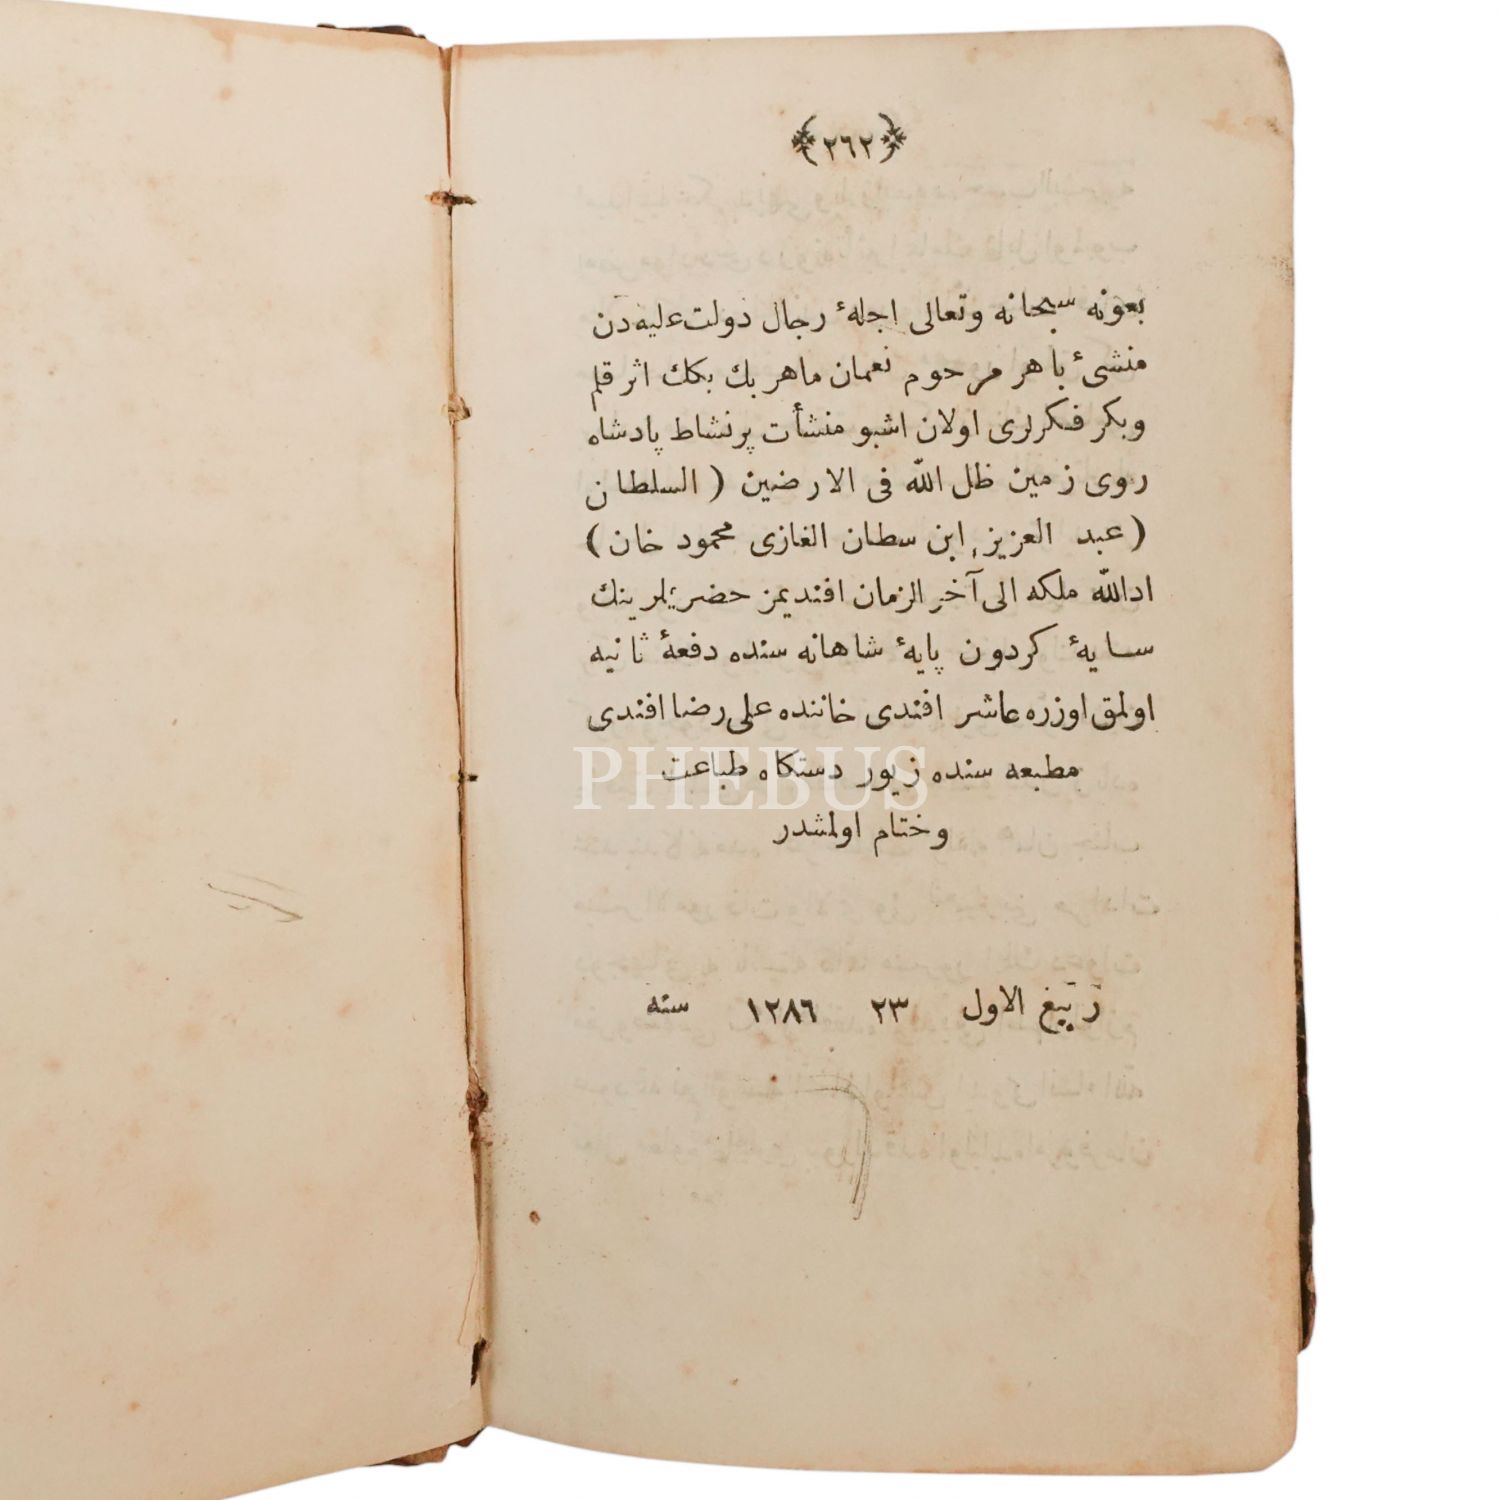 ٢٦٢
بعونه سبحانه وتعالى اجلهٔ رجال دولت عليه دن
منشئ باهر مرحوم نعمان ماهر بك بكك اثر قلم
وبكر فكرلرى اولان اشبو منشأت پرنشاط پادشاه
روى زمين ظل الله فى الارضين (السلطان
(عبد العزيز ابن سطان الغازى محمود خان)
ادالله ملكه الى آخر الزمان افنديمز حضرتلرينك
سايهٔ كردون پايهٔ شاهانه سنده دفعهٔ ثانيه
اولمق اوزره عاشر افندى خاننده على رضا افندى
مطبعه سنده زيور دستكاه طباعت
وختام اولمشدر
PHEBUS
ربيع الاول ٢٣ ١٢٨٦ سنه